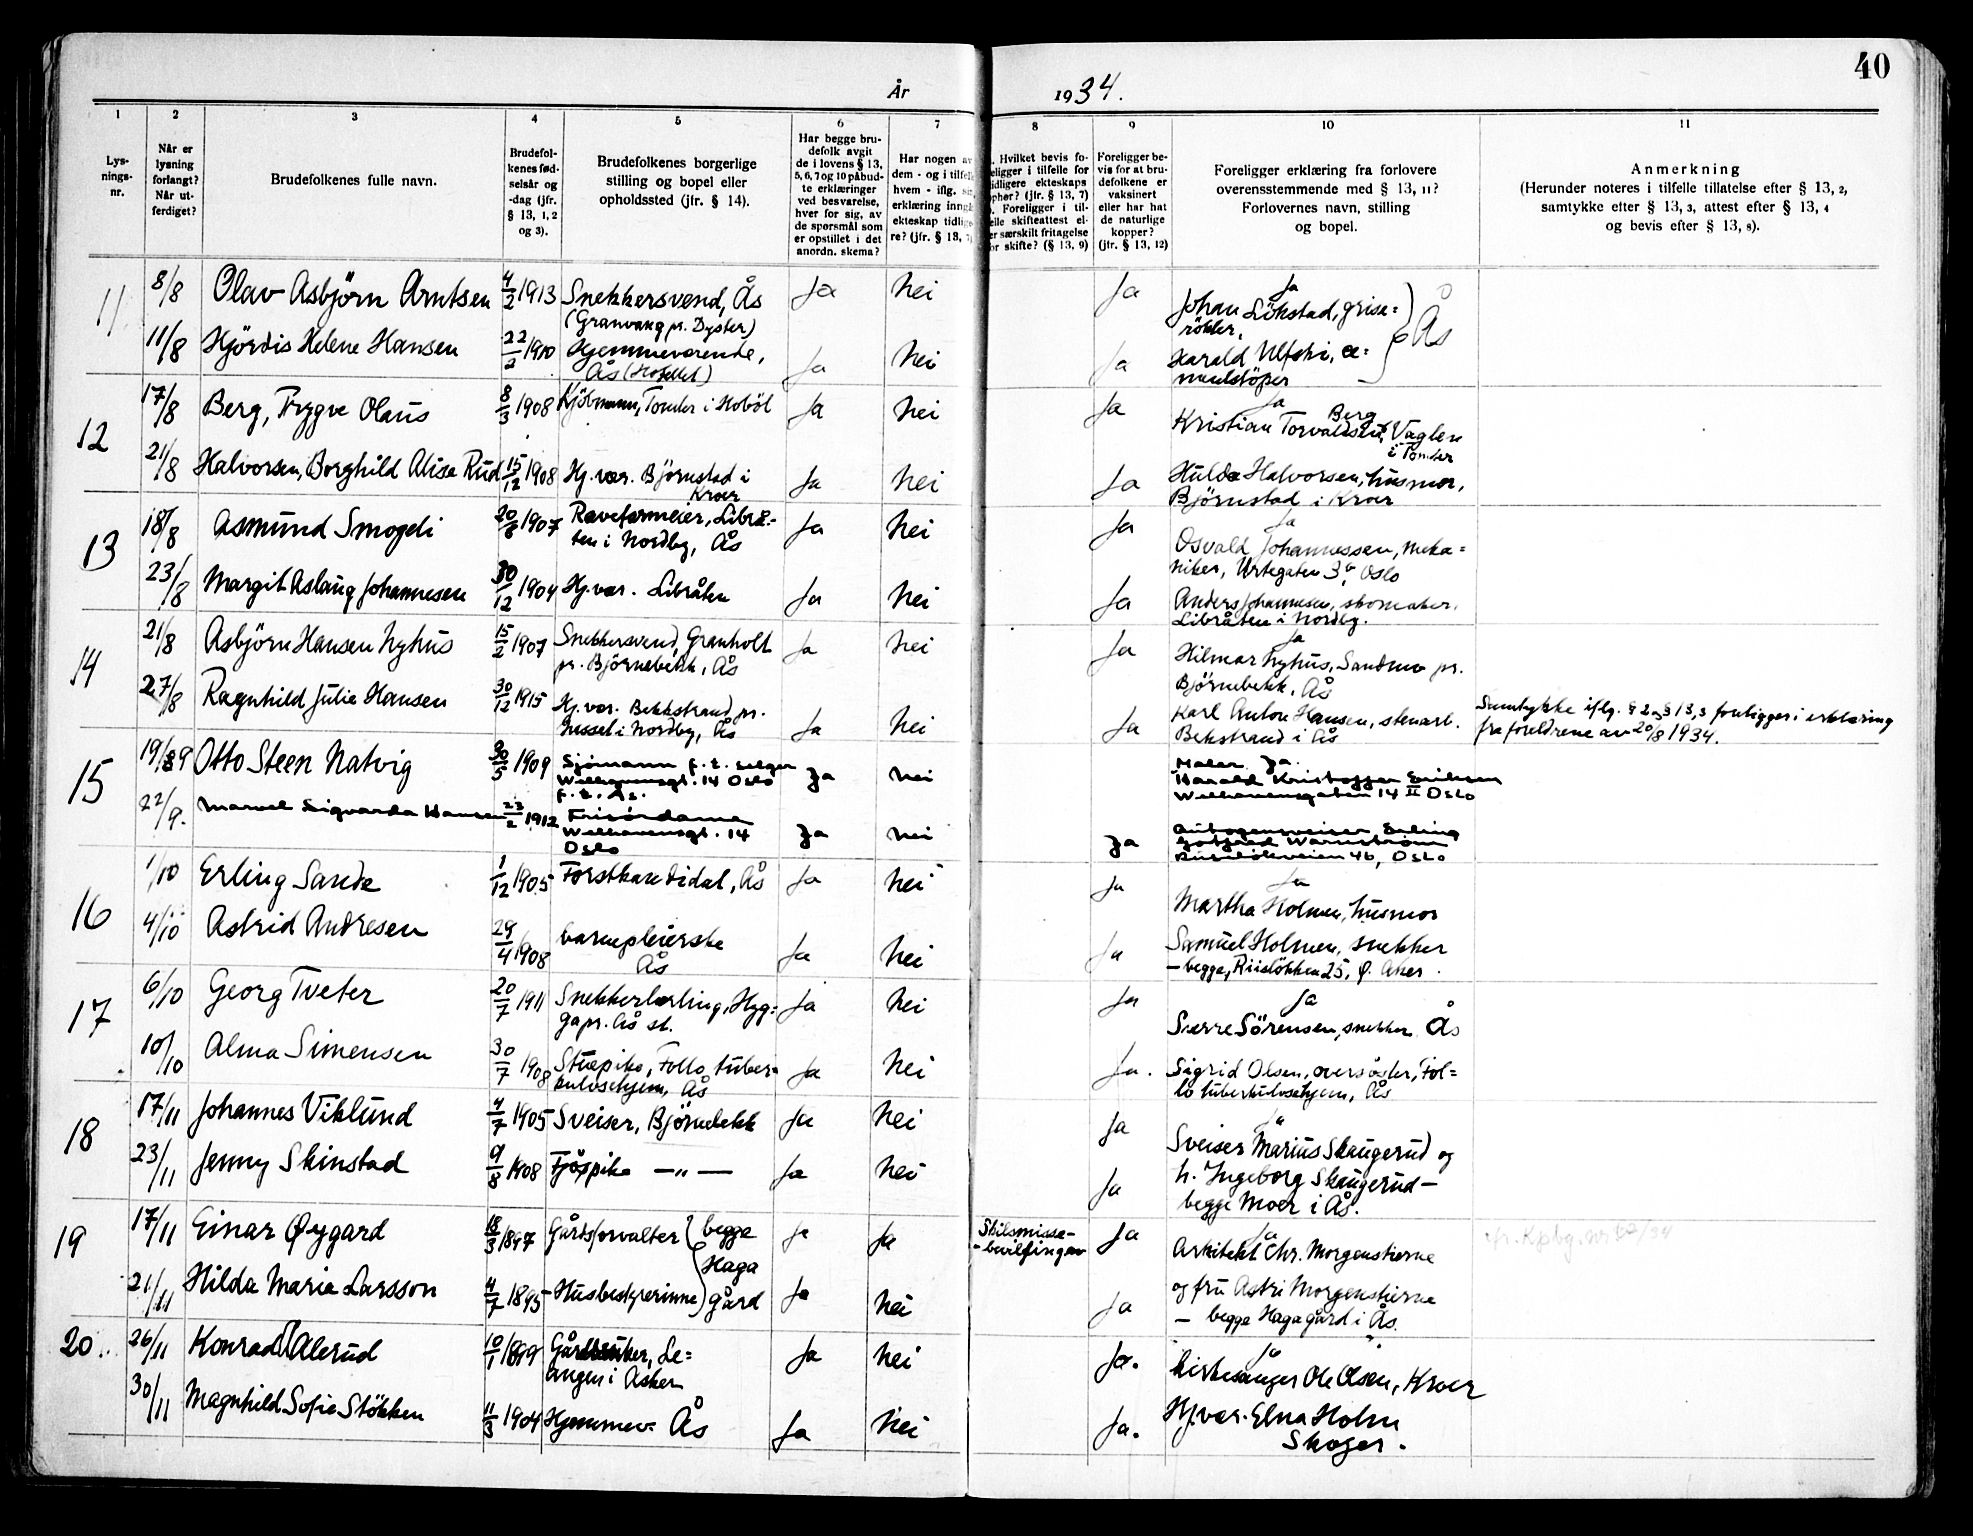 40
År 1934.
1 2 3 4 5 6 7 8 9 10 11
Lys-
nings-
nr.
Når er
lysning
forlangt?
Når ut-
ferdiget?
Brudefolkenes fulle navn.
Brudefol-
kenes fød-
selsår og
-dag (jfr.
§ 13, 1, 2
og 3).
Brudefolkenes borgerlige
stilling og bopel eller
opholdssted (jfr. § 14).
Har begge bru-
defolk avgit
de i lovens § 13,
5, 6, 7 og 10 påbud-
te erklæringer
ved besvarelse,
hver for sig, av
de spørsmål som
er opstillet i det
anordn. skema?
Har nogen av
dem - og i tilfelle
hvem - iflg. sin
erklæring inngå
ekteskap tidlige
re? (jfr. § 13, 7)
. Hvilket bevis fo-
eligger i tilfelle for
idligere ekteskaps
phør? (jfr. § 13, 7)
. Foreligger i til-
elle skifteattest el-
er særskilt fritagelse
or skifte? (§ 13, 9)
Foreligger be-
vis for at bru-
defolkene er
vaksinert
eller har hat
de naturlige
kopper?
(jfr. § 13, 12)
Foreligger erklæring fra forlovere
overensstemmende med § 13, 11?
Forlovernes navn, stilling
og bopel.
Anmerkning
(Herunder noteres i tilfelle tillatelse efter § 13, 2,
samtykke efter § 13, 3, attest efter § 13, 4
og bevis efter § 13, 8).
11. 8/8 Olav Asbjörn Arntsen 4/2 1913 Snekkersvend, Ås Ja Nei Ja Ja
(Granvang pr. Dyster)
Johan Lökstad, grise=
røkter,
11/8 Hjördis Helene Hansen 22/2 1910 Hjemmeværende, Ja Nei Ja Harald
Ås (Hotellet)
Ås
12 17/8 Berg, Trygve Olaus 8/3 1908 Kjöbmann, Tomter i Hobøl Ja Nei Ja Ja
Kristian Torvaldsen Berg, Vaglen
i Tomter
21/8 Halvorsen, Borghild Alise Rud 15/12 1908 Hj. vær. Björnstad i Ja Nei Ja Hulda Halvorsen, husmor,
Kroer
Björnstad i Kroer
13 18/8 Asmund Smogeli 20/8 1907 Revefarmeier, Librå- Ja Nei Ja Ja
ten i Nordby, Ås
Osvald Johannessen, meka=
niker, Urtegaten 3b, Oslo
23/8 Margit Aslaug Johannesen 30/12 1904 Hj. vær. Libråten Ja Nei Ja Anders Johannesen, skomaker,
Libråten i Nordby.
14 21/8 Asbjörn Hansen Nyhus 15/2 1907 Snekkersvend, Granholt Ja Nei Ja Ja
pr. Björnebekk, Ås
Hilmar Nyhus, Sandmo pr.
Björnebekk, Ås
27/8 Ragnhild Julie Hansen 30/12 1915 Hj. vær. Bekkstrand pr. Ja Nei Ja Karl Anton Hansen, stenarb.
Nesset i Nordby, Ås
Bekstrand i Ås
Samtykke iflg. § 2 og § 13,3 foreligger i erklæring
fra foreldrene av 20/8 1934.
15 19/9 Otto Steen Natvig 30/5 1909 Sjömann f. t. selger Ja Nei Maler Ja.
Welhavensgt. 14 Oslo
f. t. Ås.
Harald Kristoffer Eriksen
Welhavensgaten 14 II Oslo
22/9. Marvel Sigvarda Hansen 23/2 1912 Frisördame Ja Nei Ja Autogensveiser Erling
Welhavensgt. 14
Oslo
Gotfred Warnström
Ruselökveien 46, Oslo
16 1/10 Erling Sande 1/12 1905 Forstkandidat, Ås Ja Nei Ja Ja
Martha Holmen, husmor
4/10 Astrid Andresen 29/4 1908 barnepleierske Ja Nei Ja Samuel Holmen, snekker
Ås
- begge, Riisløkken 25, Ø. Aker.
17 6/10 Georg Tveter 20/7 1911 Snekkerlærling, Hyg= Ja Nei Ja Ja
ga pr. Ås st.
Sverre Sörensen, snekker Ås
10/10 Alma Simensen 30/7 1908 Stuepike, Follo tuber= Ja Nei Ja. Sigrid Olsen, oversöster, Fol=
kulosehjem, Ås
lo tuberkulosehjem, Ås
18 17/11 Johannes Viklund 4/7 1905 Sveiser, Björnebekk Ja Nei Ja Ja
Sveiser Marius Skaugerud og
23/11 Jenny Skinstad 9/8 1908 Fjöspike — „ — Ja Nei Ja h. Ingeborg Skaugerud —
begge Moer i Ås.
19 17/11 Einar Øygard 18/3 1897 Gårdsforvalter begge Ja Ja Skilsmisse- Ja Ja
-bevilling av
Haga
Arkitekt Chr. Morgenstierne
21/11 Hilda Maria Larsson 4/7 1895 Husbestyrerinne gård Ja Nei Ja og fru Astri Morgenstierne
— begge Haga gård i Ås.
20. 26/11 Konrad Alerud 10/1 1899 Le= Ja Nei Ja. Ja
angen i Asker
Kirkesanger Ole Olsen, Kroer
30/11 Magnhild Sofie Stökken 11/3 1904 Hjemmev. Ås Ja Nei Ja. Hj. vær. Elna Holm
Skoger.